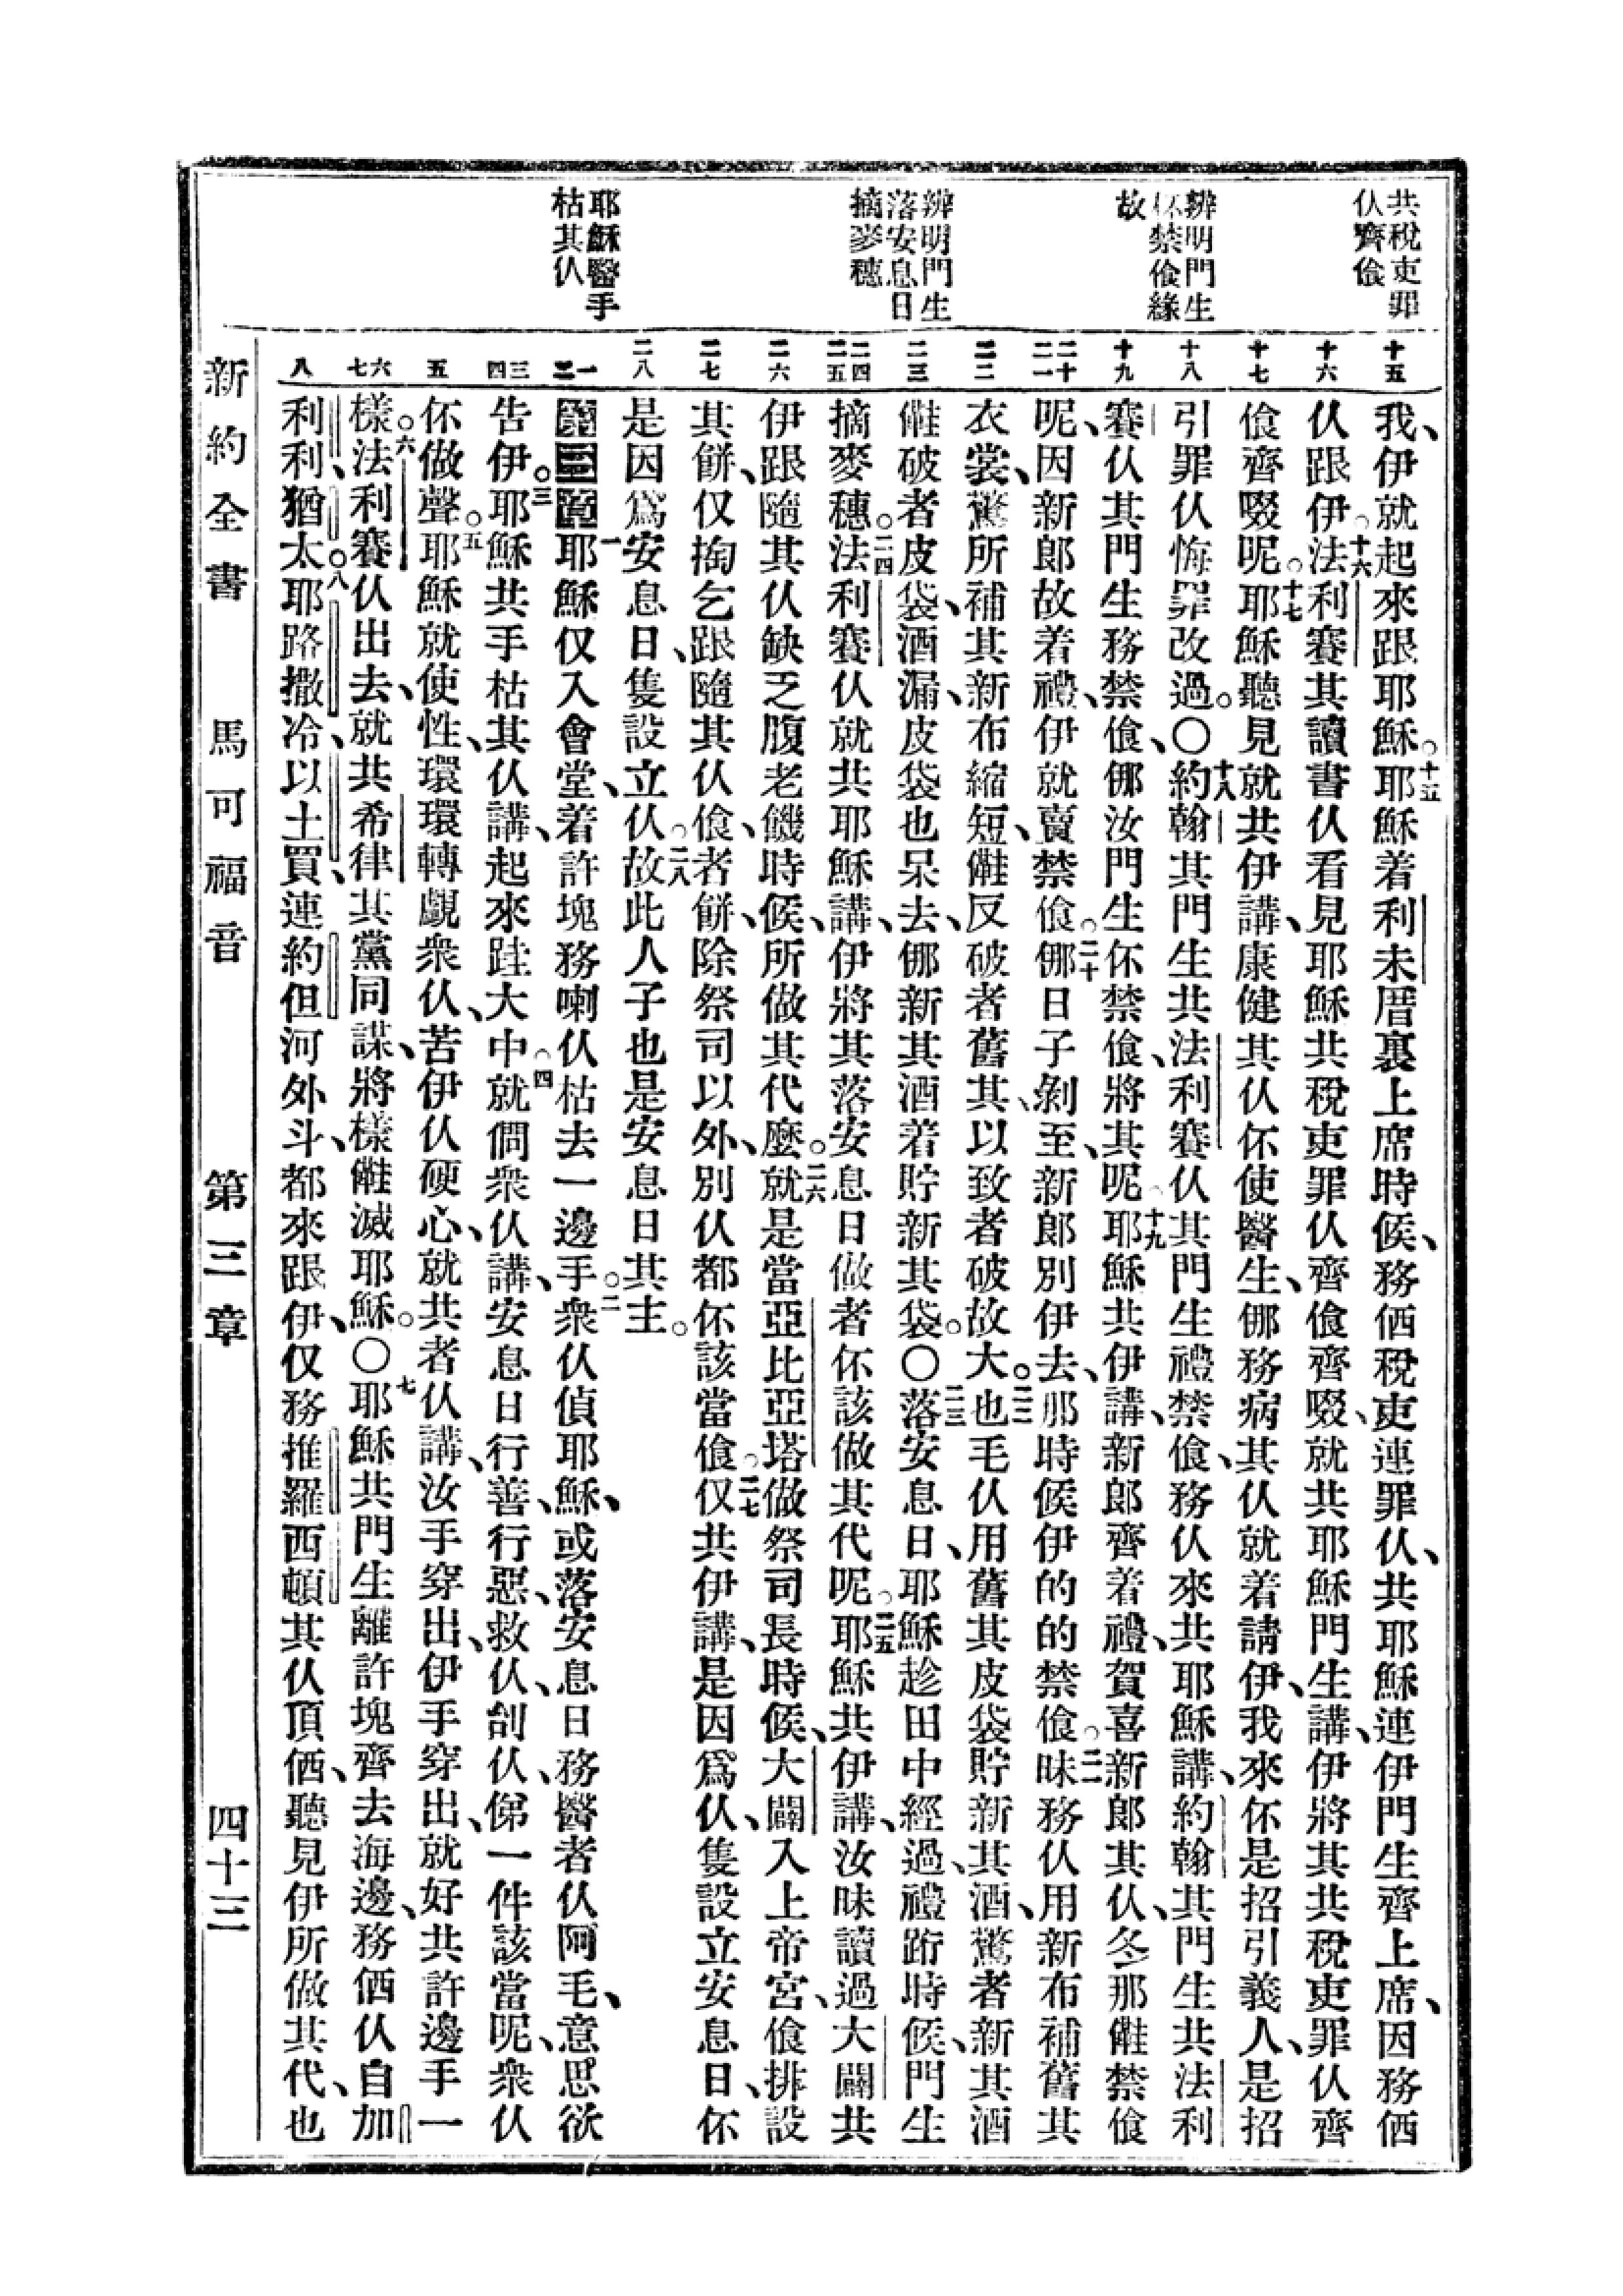 共稅吏罪
仈齊飧
辨明門生
伓禁飧緣
故
辨明門生
落安息日
摘麥穗
耶穌醫手
枯其仈
十五
十六
十七
十八
十九
二十
二一
二二
二三
二四
二五
二六
二七
二八
一
二
三
四
五
六
七
八
我、伊就起來跟耶穌。十五耶穌着利未厝裏上席時候、務個稅吏連罪仈、共耶穌連伊門生齊上席、因務個
仈跟伊。十六法利賽其讀書仈看見耶穌共稅吏罪仈齊飧齊啜、就共耶穌門生講、伊將其共稅吏罪仈齊
飧齊啜呢。十七耶穌聽見就共伊講、康健其仈伓使醫生、㑚務病其仈就着請伊、我來伓是招引義人、是招
引罪仈悔罪改過。〇十八約翰其門生共法利賽仈其門生禮禁飧、務仈來共耶穌講、約翰其門生共法利
賽仈其門生務禁飧、㑚汝門生伓禁飧、將其呢。十九耶穌共伊講、新郎齊着禮、賀喜新郎其仈、冬那儺禁飧
呢、因新郎故着禮、伊就賣禁飧。二十㑚日子剝至、新郎別伊去、那時候伊的的禁飧。二一昧務仈用新布補舊其
衣裳、驚所補其新布縮短、儺反破者舊其、以致者破故大。二二也毛仈用舊其皮袋貯新其酒、驚者新其酒
儺破者皮袋、酒漏、皮袋也呆去、㑚新其酒着貯新其袋。〇二三落安息日、耶穌趁田中經過、禮跡時候、門生
摘麥穗。二四法利賽仈就共耶穌講、伊將其落安息日做者伓該做其代呢。二五耶穌共伊講、汝昧讀過大闢共
伊跟隨其仈缺乏腹老饑時候、所做其代麽。二六就是當亞比亞塔做祭司長時候、大闢入上帝宮、飧排設
其餅、仅掏乞跟隨其仈飧、者餅、除祭司以外、別仈都伓該當飧。二七仅共伊講、是因爲仈、隻設立安息日、伓
是因爲安息日隻設立仈。二八故此人子也是安息日其主。
第三章一耶穌仅入會堂、着許塊務喇仈枯去一邊手。二衆仈偵耶穌、或落安息日務醫者仈阿毛、意思欲
告伊。三耶穌共手枯其仈講、起來跬大中。四就問衆仈講、安息日行善、行惡、救仈、刣仈、俤一件該當呢、衆仈
伓做聲。五耶穌就使性、環環轉覷衆仈、苦伊仈硬心、就共者仈講、汝手穿出、伊手穿出、就好共許邊手一
樣。六法利賽仈出去、就共希律其黨同謀、將樣儺滅耶穌。〇七耶穌共門生離許塊齊去海邊、務個仈自加
利利、猶太。八耶路撒冷、以土買、連約但河外斗、都來跟伊、仅務推羅西頓其仈頂個、聽見伊所做其代、也
新約全書　馬可福音　第三章　四十三